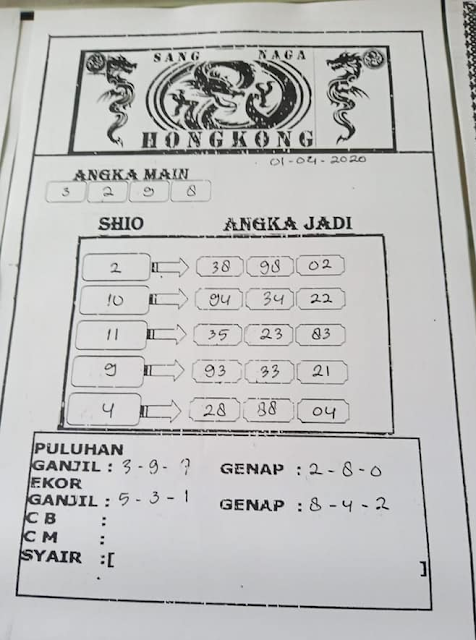 SANG NAGA
HONGKONG
01-04-2020
ANGKA MAIN
3 2 9 8
SHIO ANGKA JADI
2 38 98 02
10 94 34 22
11 35 23 83
9 93 33 21
4 28 88 04
PULUHAN
GANJIL : 3-9-7 GENAP : 2-8-0
EKOR
GANJIL : 5-3-1 GENAP : 8-4-2
C B :
C M :
SYAIR :[
]